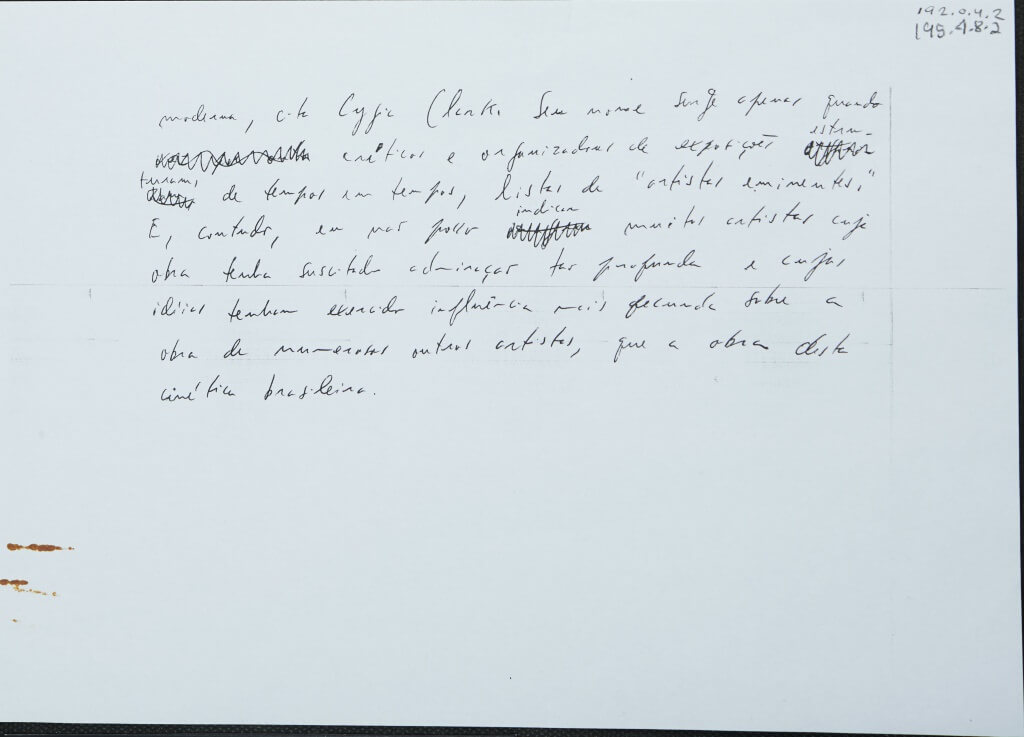 192.0.4.2
195.4.8.2
moderna, cita Lygia Clark. Seu nome surge apenas quando
críticos e organizadores de exposições estru-
turam, de tempos em tempos, listas de "artistas eminentes."
E, contudo, eu não posso indicar muitos artistas cuja
obra tenha suscitado admiração tão profunda e cujas
idéias tenham exercido influência mais fecunda sobre a
obra de numerosos outros artistas, que a obra desta
cinética brasileira.